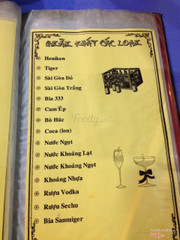 NHÃN KHÁT CÁC LOẠI
Heniken
Tiger
Sài Gòn Đỏ
Sài Gòn Trắng
Bia 333
Cam Ép
Bò Húc
Coca (lon)
Nước Ngọt
Nước Khoáng Lạt
Nước Khoáng Ngọt
Khoáng Nhựa
Rượu Vodka
Rượu Sochu
Bia Sanmiger
Foody